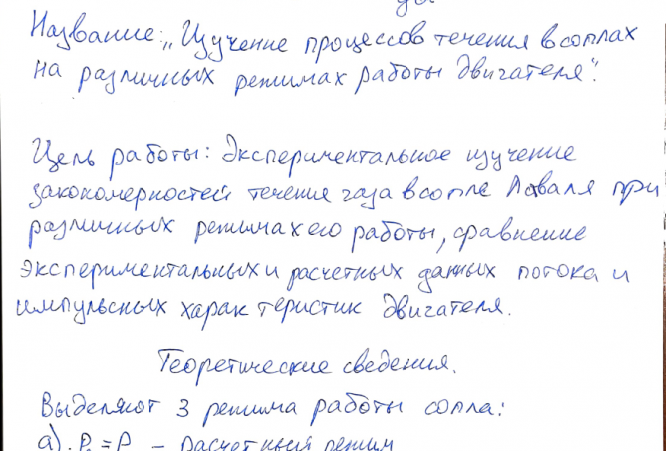 Название: „Изучение процессов течения в соплах
на различных режимах работы двигателя".
Цель работы: Экспериментальное изучение
закономерностей течение газа в сопле Лаваля при
различных режимах его работы, сравнение
экспериментальных и расчетных данных потока и
импульсных характеристик двигателя.
Теоретические сведения.
Выделяют 3 режима работы сопла:
а). = P – расчетный режим